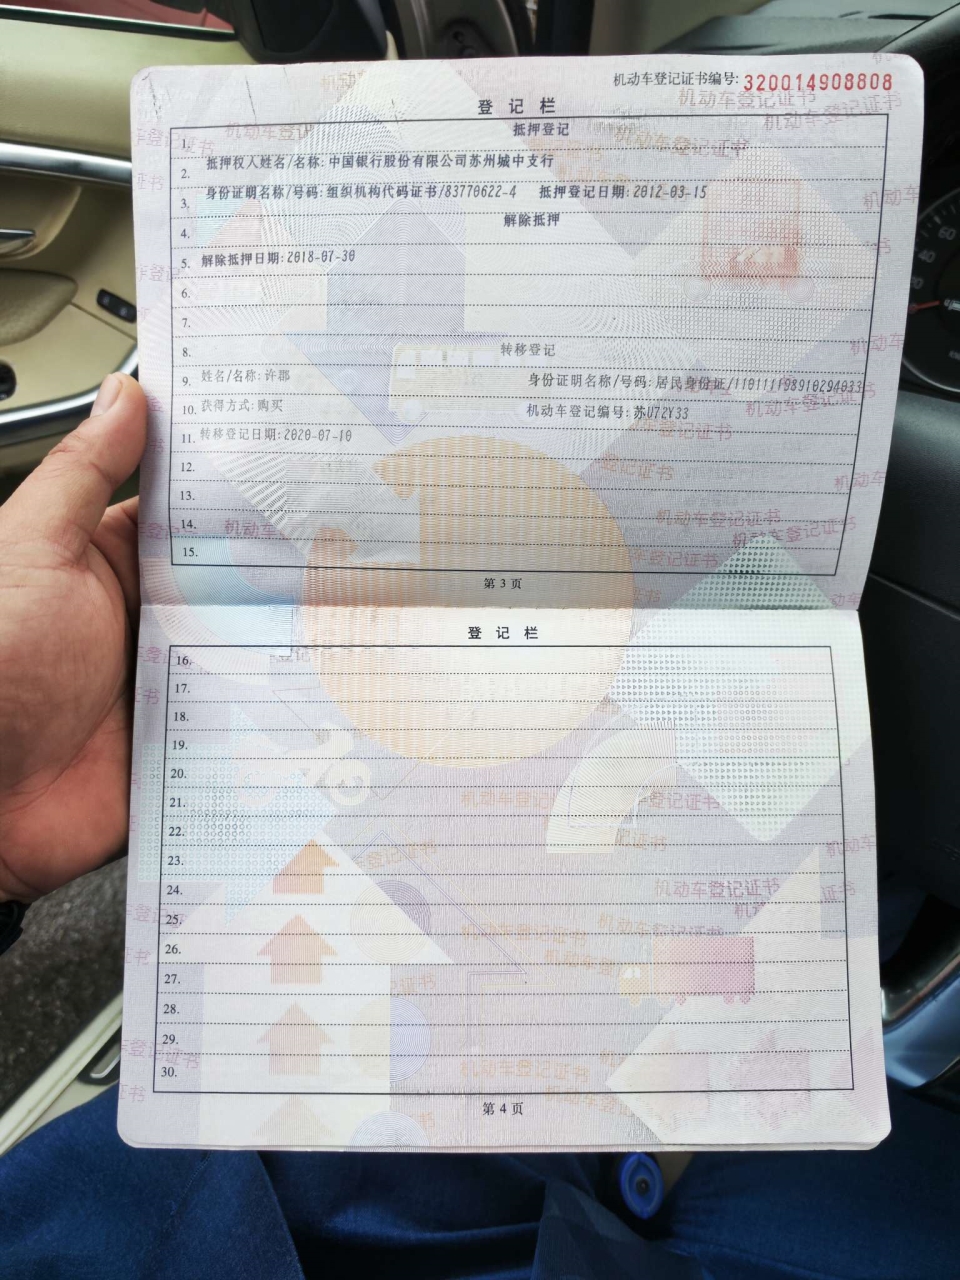 机动车登记证书编号: 320014908808
登 记 栏
1. 抵押登记
2. 抵押权人姓名/名称: 中国银行股份有限公司苏州城中支行
3. 身份证明名称/号码: 组织机构代码证书/83770622-4 抵押登记日期: 2012-03-15
4. 解除抵押
5. 解除抵押日期: 2018-07-30
6.
7.
8. 转移登记
9. 姓名/名称: 许郡 身份证明名称/号码: 居民身份证/110111198910294033
10. 获得方式: 购买 机动车登记编号: 苏U72Y33
11. 转移登记日期: 2020-07-10
12.
13.
14.
15.
第 3 页
登 记 栏
16.
17.
18.
19.
20.
21.
22.
23.
24.
25.
26.
27.
28.
29.
30.
第 4 页